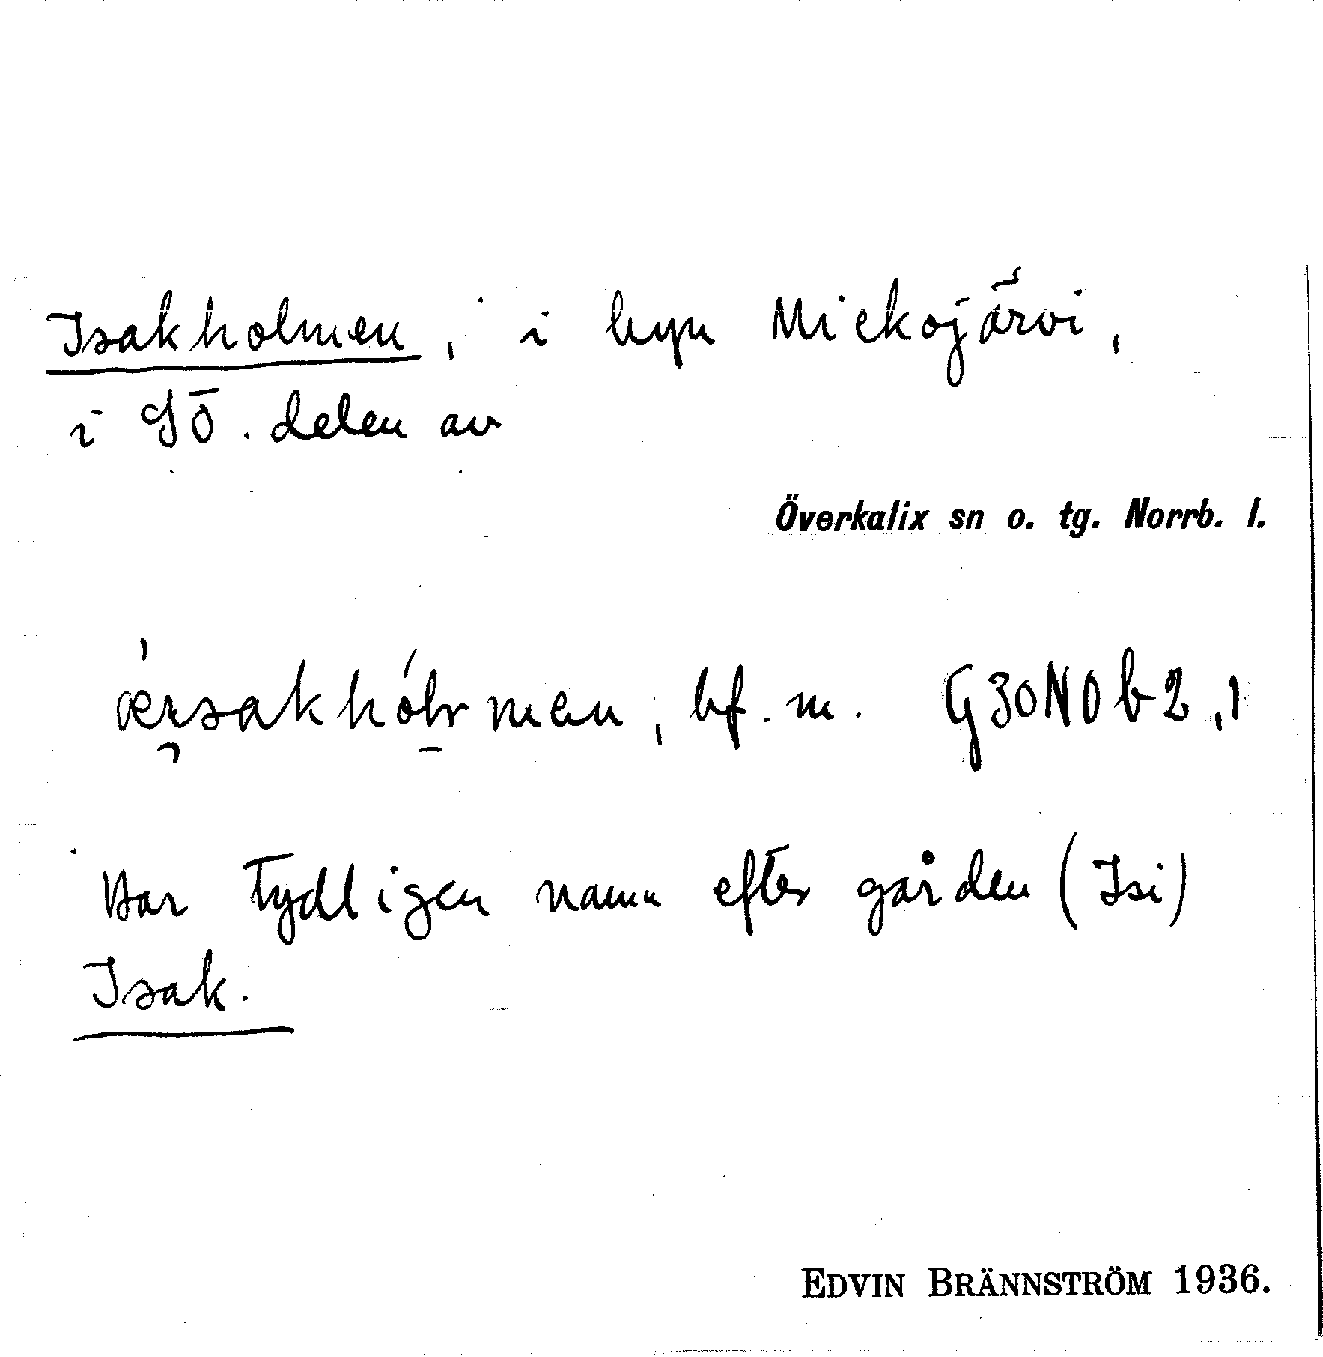 Isakholmen, i byn Mickojärvi,
i SÖ. delen av
Överkalix sn o. tg. Norrb. l.
bf. m. G30NOb2,1
Har tydligen namn efter gården (Isi)
Isak.
EDVIN BRÄNNSTRÖM 1936.